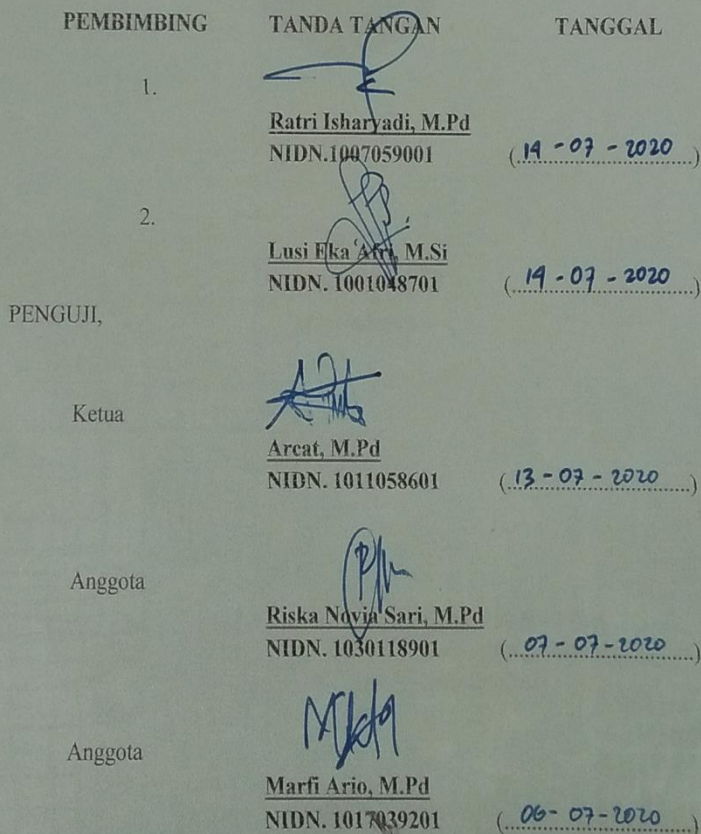 PEMBIMBING TANDA TANGAN TANGGAL
1.
Ratri Isharyadi, M.Pd
NIDN.1007059001 (14 - 07 - 2020)
2.
Lusi Eka 'Afri, M.Si
NIDN. 1001048701 (14 - 07 - 2020)
PENGUJI,
Ketua
Arcat, M.Pd
NIDN. 1011058601 (13 - 07 - 2020)
Anggota
Riska Novia Sari, M.Pd
NIDN. 1030118901 (07 - 07 - 2020)
Anggota
Marfi Ario, M.Pd
NIDN. 1017039201 (06 - 07 - 2020)